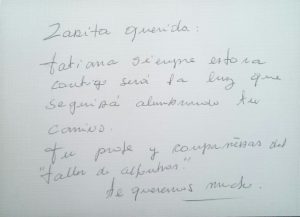 Zarita querida:
Tatiana siempre estara
contigo será la luz que
seguirá alumbrando tu
camino.
Tu profe y compañeras del
"taller de
te queremos mucho.